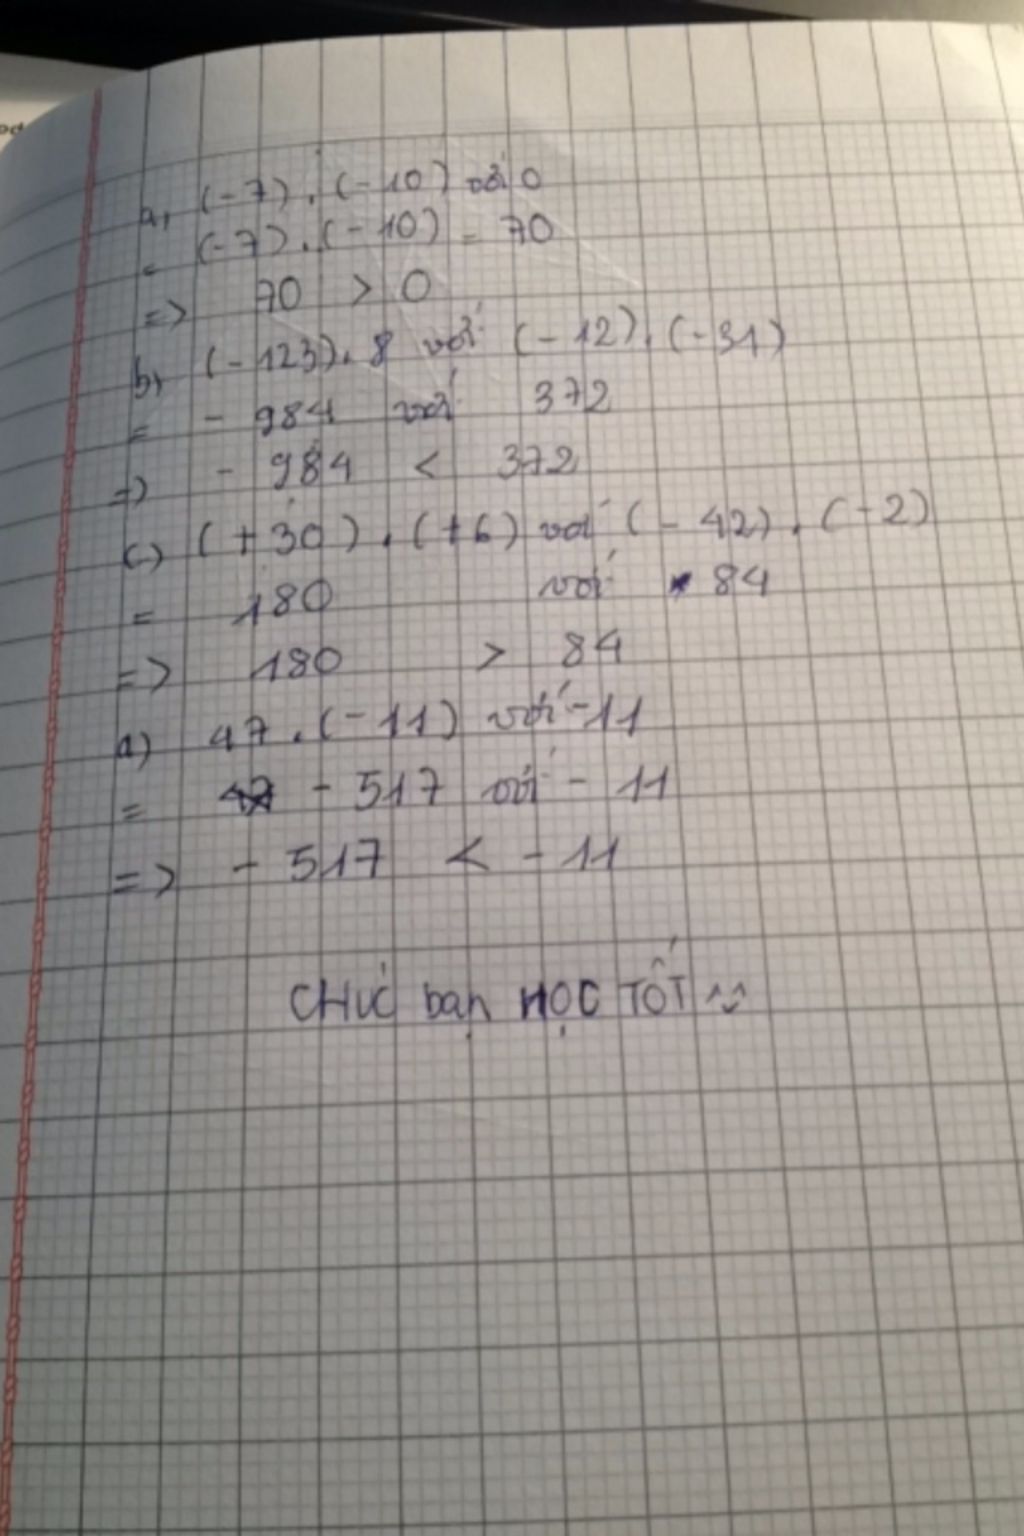 a, (-7) . (-10) với 0
= (-7) . (-10) = 70
=> 70 > 0
b, (-123) . 8 với (-12) . (-31)
= - 984 với 372
=> - 984 < 372
c) (+30) . (+6) với (-42) . (-2)
= 180 với 84
=> 180 > 84
a) 47 . (-11) với -11
= - 517 với - 11
=> - 517 < - 11
CHÚC bạn HỌC TỐT ^^